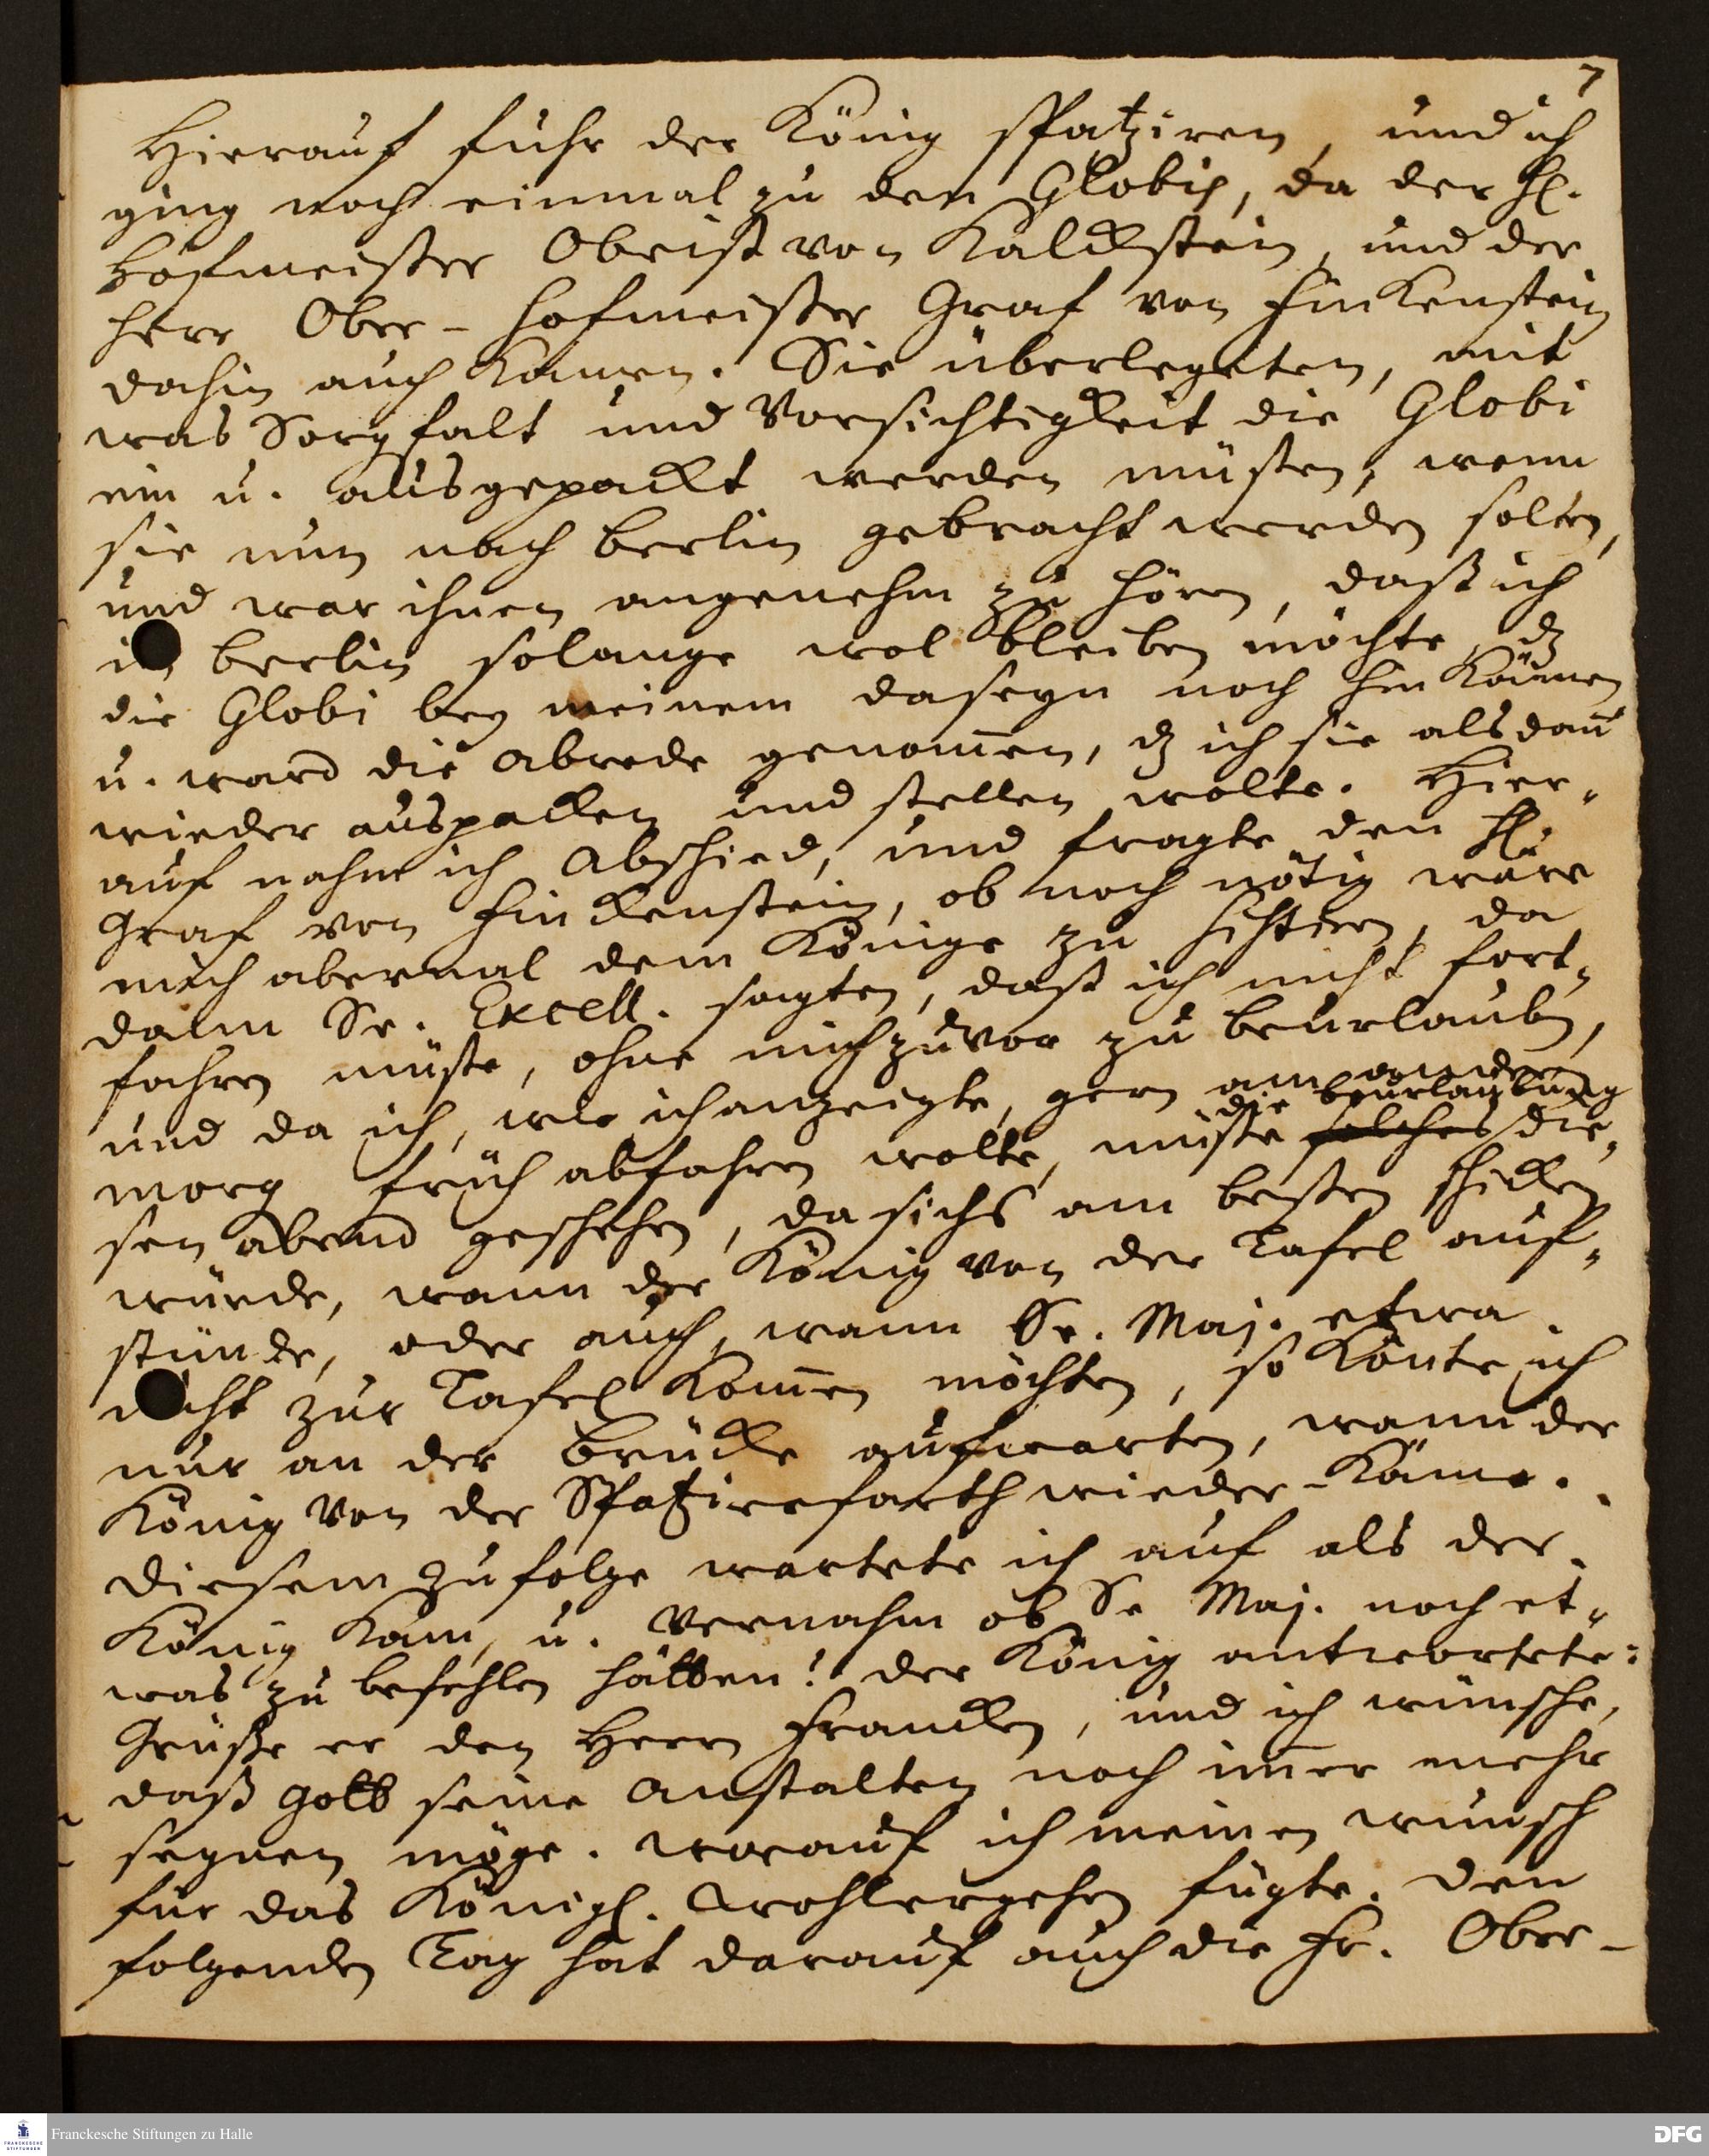 7
Hierauf fuhr der König spatziren, und ich
ging noch einmal zu den Globis, da der H.
Hofmeister Obrist von Kalckstein, und der
Herr Ober-Hofmeister Graf von Finckenstein
dahin auch kamen. Sie überlegeten, mit
was Sorgfalt und Vorsichtigkeit die Globi
ein u. ausgepackt werden müsten, wenn
sie nun nach Berlin gebracht werden solten,
und war ihnen angenehm zu hören, daß ich
in Berlin solange wol bleiben möchte, dz
die Globi bey meinem daseyn noch hin kämen
u. ward die Abrede genom̄en, dz ich sie alsdan̄
wieder auspacken und stellen wolte. Hier-
auf nahm ich Abschied, und fragte den H.
Graf von Finckenstein, ob noch nötig wäre
mich abermal dem Könige zu sistiren, da
dann Se. Excell. sagten, daß ich nicht fort-
fahren müste, ohne mich zuvor zu beurlauben,
und da ich, wie ich anzeigte, gern am andern
die beurlaubung
morg früh abfahren wolte, müste solches die-
sen Abend geschehen, da sichs am besten schicken
würde, wann der König von der Tafel auf-
stünde, oder auch, wann Se. Maj. etwa
nicht zur Tafel kom̄en möchten, so könte ich
nur an der Brücke aufwarten, wann der
König von der Spatzirefarth wieder-käme.
Diesem zufolge wartete ich auf als der
König kam, u. vernahm ob Se Maj. noch et-
was zu befehlen hätten! der König antwortete:
Grüße er den Herrn Francken, und ich wünsche,
daß Gott seine Anstalten noch im̄er mehr
segnen möge. worauf ich meinen wunsch
für das Königl. Wohlergehen fügte. Den
folgenden Tag hat darauf auch die Fr. Ober-
Franckesche Stiftungen zu Halle
FRANCKESCHE STIFTUNGEN
DFG